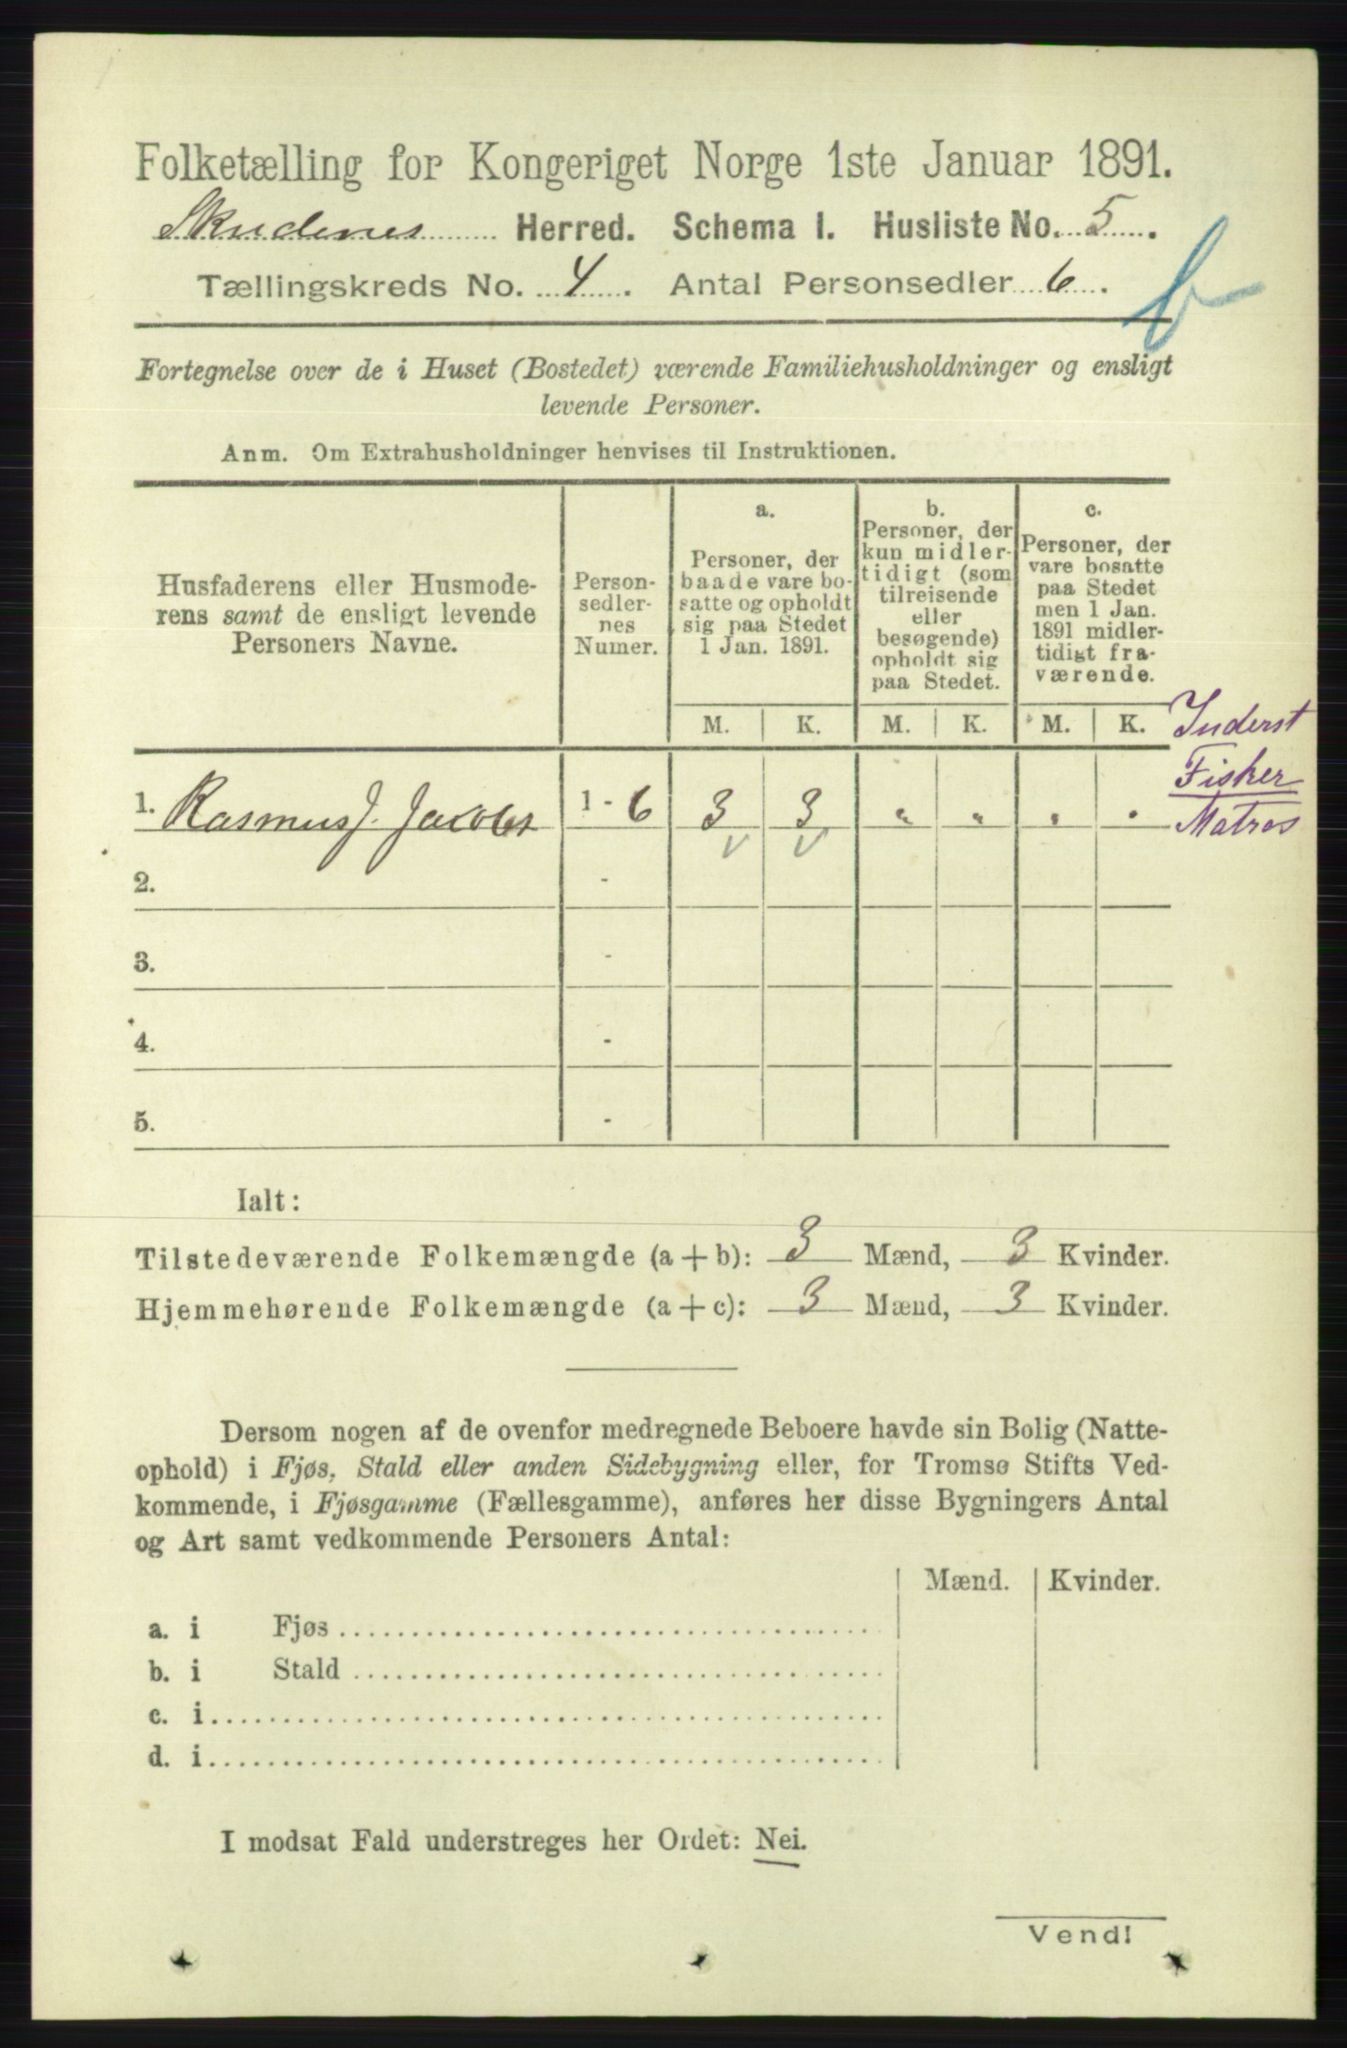 Folketælling for Kongeriget Norge 1ste Januar 1891.
Skudenes Herred. Schema I. Husliste No. 5.
Tællingskreds No. 4. Antal Personsedler 6.
b
Fortegnelse over de i Huset (Bostedet) værende Familiehusholdninger og ensligt
levende Personer.
Anm. Om Extrahusholdninger henvises til Instruktionen.
Husfaderens eller Husmode-
rens samt de ensligt levende
Personers Navne.
Person-
sedler-
nes
Numer.
a.
Personer, der
baade vare bo-
satte og opholdt
sig paa Stedet
1 Jan. 1891.
M. K.
b.
Personer, der
kun midler-
tidigt (som
tilreisende
eller
besøgende)
opholdt sig
paa Stedet.
M. K.
c.
Personer, der
vare bosatte
paa Stedet
men 1 Jan.
1891 midler-
tidigt fra-
værende.
M. K.
Inderst
Fisker
Matros
1. Rasmus J. Jacobs 1 - 6 3 3 " " " "
2. -
3. -
4. -
5. -
Ialt:
Tilstedeværende Folkemængde (a + b): 3 Mænd, 3 Kvinder.
Hjemmehørende Folkemængde (a + c): 3 Mænd, 3 Kvinder.
Dersom nogen af de ovenfor medregnede Beboere havde sin Bolig (Natte-
ophold) i Fjøs, Stald eller anden Sidebygning eller, for Tromsø Stifts Ved-
kommende, i Fjøsgamme (Fællesgamme), anføres her disse Bygningers Antal
og Art samt vedkommende Personers Antal:
Mænd. Kvinder.
a. i Fjøs
b. i Stald
c. i
d. i
I modsat Fald understreges her Ordet: Nei.
Vend!